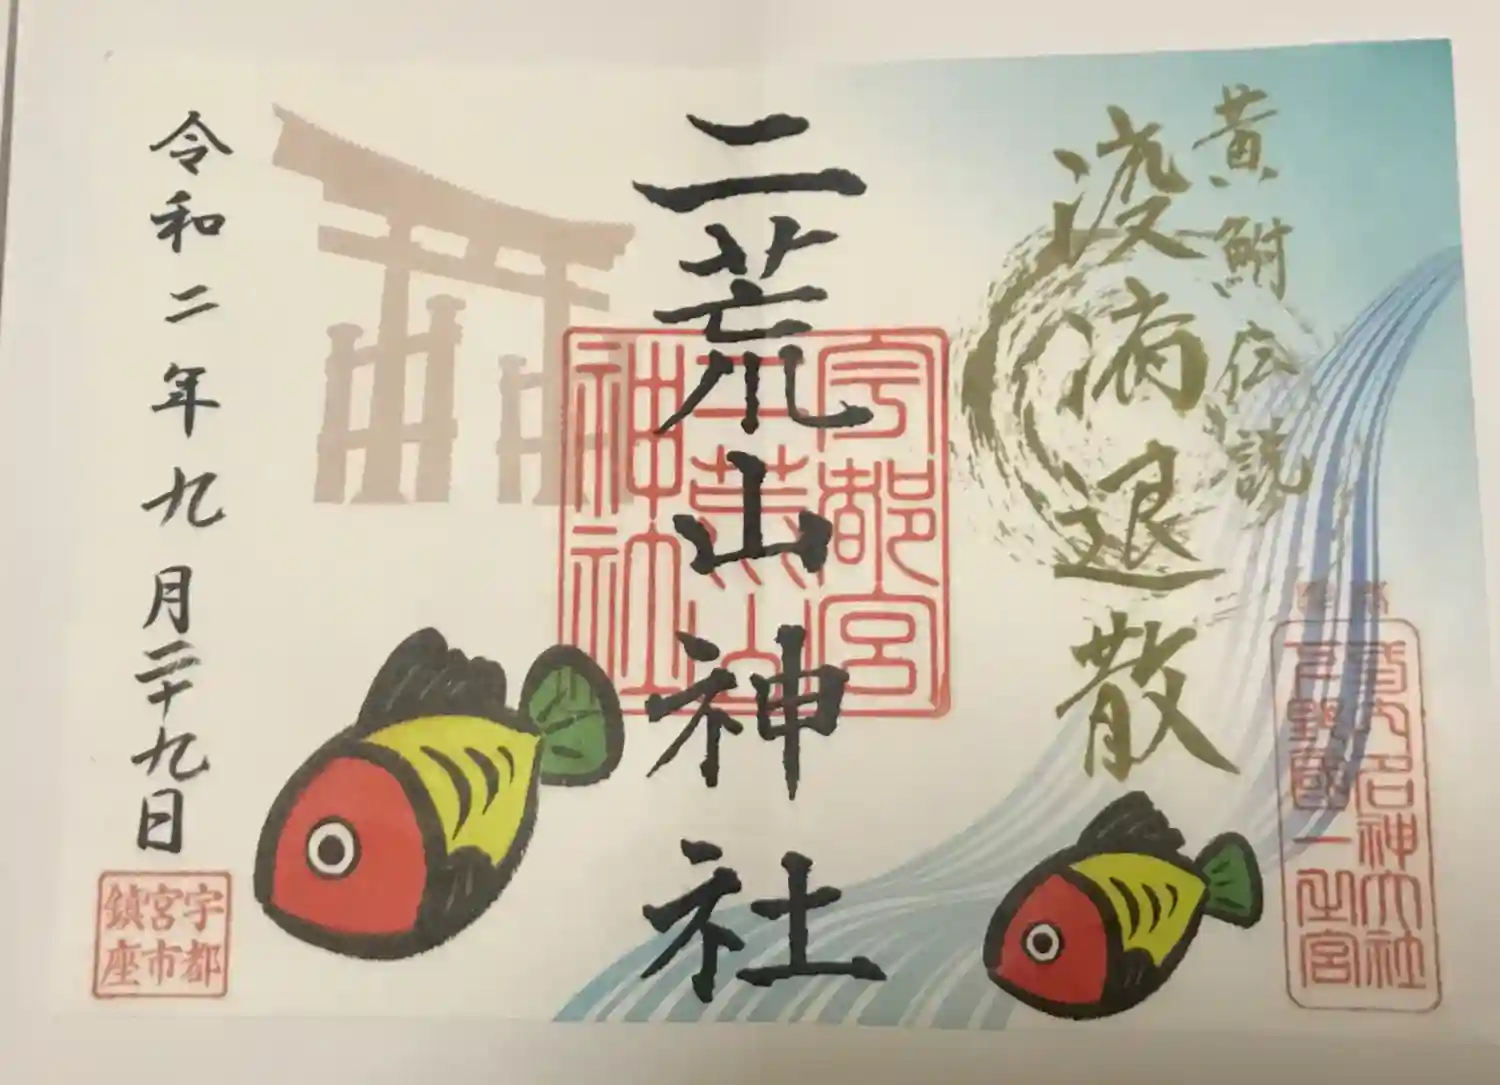 黄鮒伝説
疫病退散
名神大社
下野國一之宮
二荒山神社
宇都宮
二荒山
神社
令和二年九月二十九日
宇都
宮市
鎮座